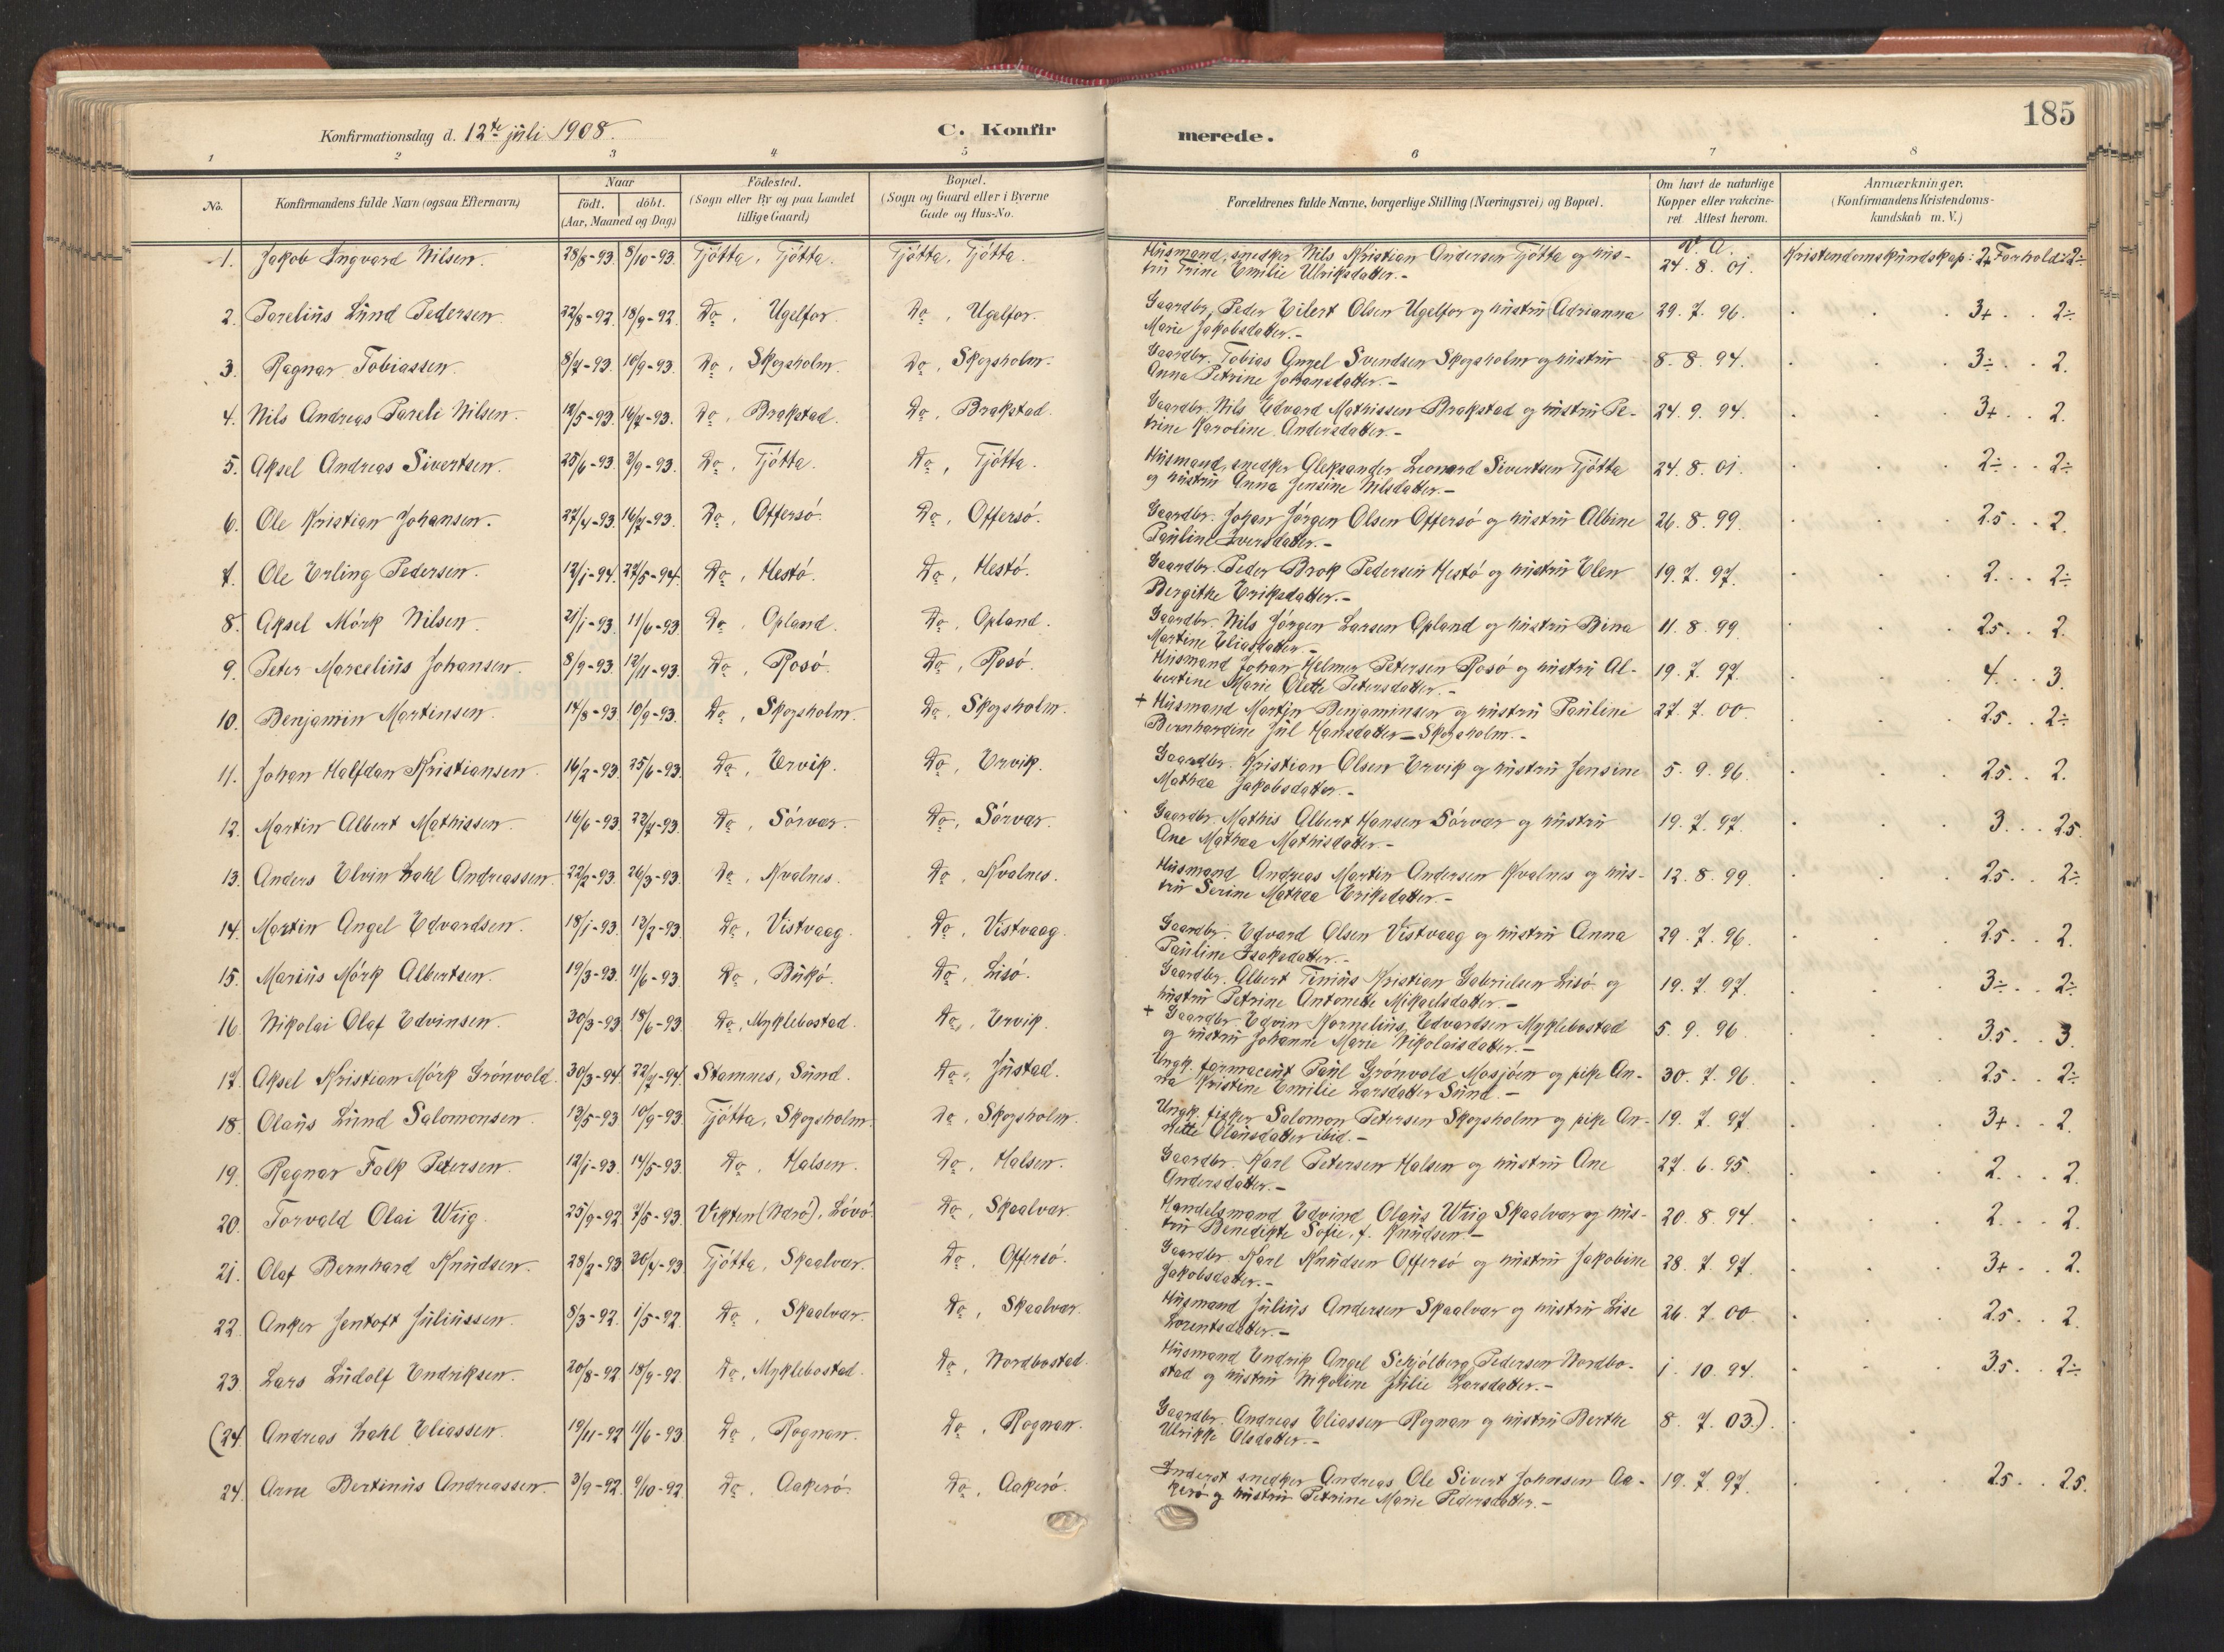 185
Konfirmationsdag d. 12te juli 1908.
C. Konfirmerede.
1 2 3 4 5 6 7 8
No. Konfirmandens fulde Navn (ogsaa Efternavn) Naar født. døbt. (Aar, Maaned og Dag) Fødested. (Sogn eller By og paa Landet tillige Gaard) Bopæl. (Sogn og Gaard eller i Byerne Gade og Hus-No. Forældrenes fulde Navne, borgerlige Stilling (Næringsvei) og Bopæl. Om havt de naturlige Kopper eller vakcineret Attest herom. Anmærkninger. (Konfirmandens Kristendomskundskab m. V.)
1. Jakob Ingvard Nilsen. 28/8-93. 8/10-93. Tjøtta, Tjøtta. Tjøtta, Tjøtta. Husmand, snedker Nils Kristian Andersen Tjøtta og hus- v. a. 24. 8. 01. Kristendomskundskap: 2+ Forhold: 2÷
tru Trine Emilie Ulriksdatter.-
2. Parelius Lund Pedersen. 22/8-92. 18/9-92. Do, Ugelfor. Do, Ugelfor. Gaardbr. Peder Eilert Olsen Ugelfor og hustru Adrianna 29. 7. 96. 3+ 2÷
Marie Jakobsdatter.-
3. Ragnar Tobiassen. 8/7-93. 10/9-93. Do, Skogsholm. Do, Skogsholm. Gaardbr. Tobias Angel Svendsen Skogsholm og hustru 8. 8. 94. 3÷ 2.
Anna Petrine Johansdatter.-
4. Nils Andreas Pareli Nilsen. 12/5-93. 16/7-93. Do, Brakstad. Do, Brakstad. Gaardbr. Nils Edvard Mathissen Brakstad og hustru Pe- 24. 9. 94. 3+ 2.
trine Karoline Andersdatter.-
5. Aksel Andreas Sivertsen. 25/6-93. 3/9-93. Do, Tjøtta. Do, Tjøtta. Husmand, snedker Aleksander Leonard Sivertsen Tjøtta 24. 8. 01. 2÷ 2÷
og hustru Anna Jensine Nilsdatter.-
6. Ole Kristian Johansen. 27/4-93. 16/7-93. Do, Offersø. Do, Offersø. Gaardbr. Johan Jørgen Olsen Offersø og hustru Albine 26. 8. 99. 2.5 2.
Pauline Iversdatter.-
7. Ole Erling Pedersen. 12/1-94. 27/5-94. Do, Hestø. Do, Hestø. Gaardbr. Peder Brok Pedersen Hestø og hustru Elen 19. 7. 97. 2. 2÷
Bergithe Eriksdatter.-
8. Aksel Mørk Nilsen. 21/1-93. 11/6-93. Do, Opland. Do, Opland. Gaardbr. Nils Jørgen Larsen Opland og hustru Bina 11. 8. 99. 2.5 2.
Martine Eliasdatter.-
9. Peter Marcelius Johansen. 8/9-93. 12/11-93. Do, Rosø. Do, Rosø. Husmand Johan Helmer Petersen Rosø og hustru Al- 19. 7. 97. 4. 3.
bertine Marie Olette Petersdatter.-
10. Benjamin Martinsen. 14/8-93. 10/9-93. Do, Skogsholm. Do, Skogsholm. + Husmand Martin Benjaminsen og hustru Pauline 27. 7. 00. 2.5 2÷
Bernhardine Jul Hansdatter – Skogsholm.-
11. Johan Halfdan Kristiansen. 16/2-93. 25/6-93. Do, Ervik. Do, Ervik. Gaardbr. Kristian Olsen Ervik og hustru Jensine 5. 9. 96. 2.5 2.
Mathea Jakobsdatter.-
12. Martin Albert Mathissen. 16/6-93. 22/7-93. Do, Sørvær. Do, Sørvær. Gaardbr. Mathis Albert Hansen Sørvær og hustru 19. 7. 97. 3. 2.5.
Ane Mathea Mathisdatter.-
13. Anders Elvin Zahl Andreassen. 22/2-93. 26/3-93. Do, Kvalnes. Do, Kvalnes. Husmand Andreas Martin Andersen Kvalnes og hus- 12. 8. 99. 2.5. 2÷
tru Serine Mathea Eriksdatter.-
14. Martin Angel Edvardsen. 18/1-93. 12/2-93. Do, Vistvaag. Do, Vistvaag. Gaardbr. Edvard Olsen Vistvaag og hustru Anna 29. 7. 96. 2.5. 2.
Pauline Isaksdatter.-
15. Marius Mørk Albertsen. 19/3-93. 11/6-93. Do, Bukø. Do, Lisø. Gaardbr. Albert Tinius Kristian Gabrielsen Lisø og 19. 7. 97. 3÷ 2÷
hustru Petrine Antonette Mikaelsdatter.-
16. Nikolai Olaf Edvinsen. 30/3-93. 18/6-93. Do, Myklebostad. Do, Ervik. + Gaardbr. Edvin Kornelius Edvardsen Myklebostad 5. 9. 96. 3.5. 3.
og hustru Johanne Marie Nikolaisdatter.-
17. Aksel Kristian Mørk Grønvold. 30/3-94. 22/7-94. Stamnes, Sund. Do, Justad. Ungk. farmaceut Paul Grønvold Mosjøen og pike An- 30. 7. 96. 2.5. 2÷
na Kristine Emilie Larsdatter Sund.-
18. Olaus Lund Salomonsen. 13/5-93. 10/9-93. Tjøtta, Skogsholm. Do, Skogsholm. Ungk. fisker Salomon Petersen Skogsholm og pike An- 19. 7. 97. 3+ 2.
nette Olausdatter ibid.-
19. Ragnar Falk Petersen. 12/1-93. 14/5-93. Do, Halsen. Do, Halsen. Gaardbr. Karl Petersen Halsen og hustru Ane 27. 6. 95. 2. 2.
Andersdatter.-
20. Torvald Olai Wiig. 25/9-92. 7/5-93. Vikten (Nærø), Løvø. Do, Skaalvær. Handelsmand Edvind Olaus Wiig Skaalvær og hus- 20. 8. 94. 2. 2.
tru Benedikte Sofie, f. Knudsen.-
21. Olaf Bernhard Knudsen. 28/2-93. 30/4-93. Tjøtta, Skaalvær. Do, Offersø. Gaardbr. Karl Knudsen Offersø og hustru Jakobine 28. 7. 97. 3+ 2.
Jakobsdatter.-
22. Anker Jentoft Juliussen. 8/3-92. 1/5-92. Do, Skaalvær. Do, Skaalvær. Husmand Julius Andersen Skaalvær og hustru Lise 26. 7. 00. 2.5. 2.
Lorentsdatter.-
23. Lars Ludolf Endriksen. 20/8-92. 18/9-92. Do, Myklebostad. Do, Nordbostad. Husmand Endrik Angel Schjølberg Pedersen Nordbo- 1. 10. 94. 3.5. 2÷
stad og hustru Nikoline Julie Larsdatter.-
(24. Andreas Zahl Eliassen. 19/11-92. 11/6-93. Do, Rognan. Do, Rognan. Gaardbr. Andreas Eliassen Rognan og hustru Berthe 8. 7. 03.).
Ulrikke Olsdatter.-
24. Arne Bertinus Andreassen. 3/9-92. 9/10-92. Do, Aakerø. Do, Aakerø. Inderst snedker Andreas Ole Sivert Johnsen Aa- 19. 7. 97. 2.5. 2.5.
kerø og hustru Petrine Marie Pedersdatter.-